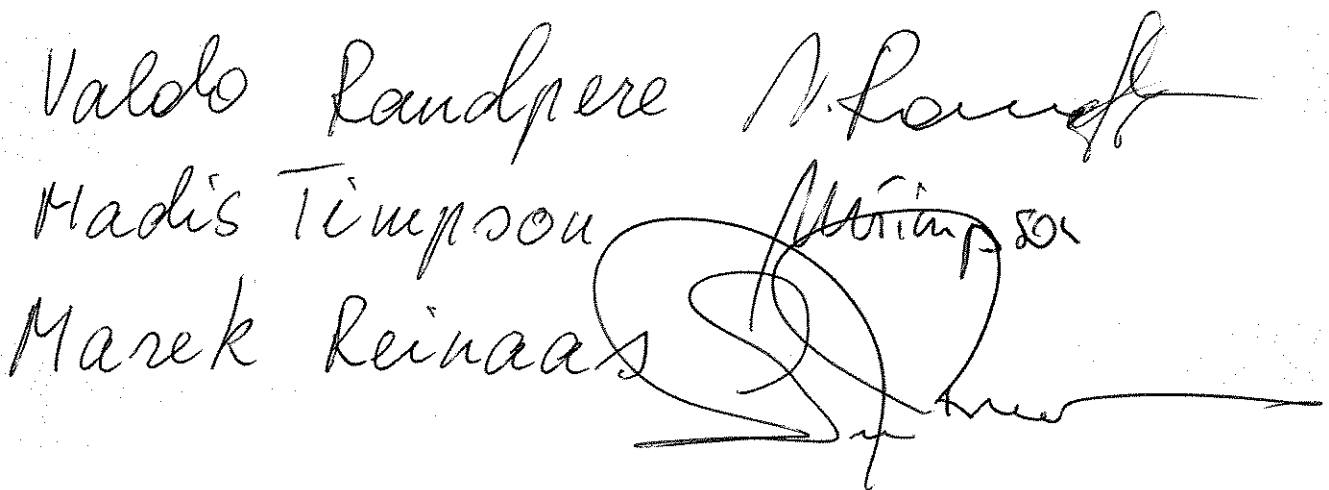 Valdo Randpere
Madis Timpson MTimpson
Marek Reinaas